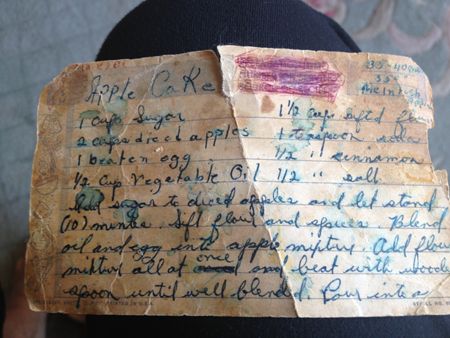 Apple Cake
35-40 min
35
McIntosh
1 Cup Sugar
2 cups diced apples
1 beaten egg
1/2 Cup Vegetable Oil
1 1/2 Cups sifted
1 teaspoon soda
1/2 " cinnamon
1/2 " salt
Add sugar to diced apples and let stand
(10) minutes. Sift flour and spices. Blend
oil and egg into apple mixture. Add flour
mixture all at once and beat with wooden
spoon until well blended. Pour into a
PRINTED IN U.S.A.